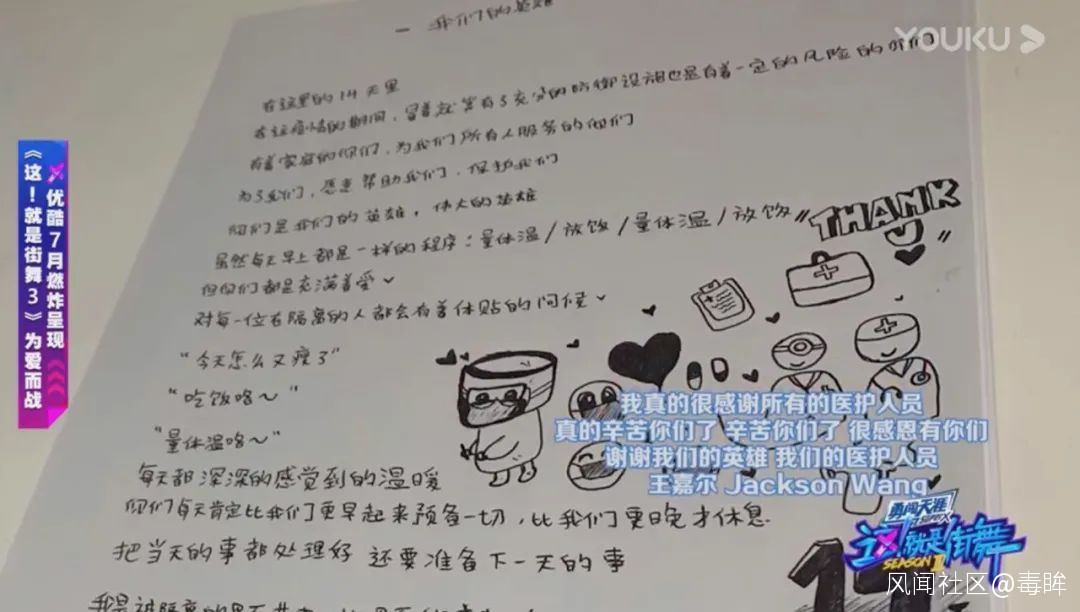 一 我们的英雄
YOUKU
在这里的14天里
在这疫情的期间，冒着就算有了充分的防御设施也是有着一定的风险的你们
有着家庭的你们，为我们所有人服务的他们
为了我们，愿意帮助我们，保护我们
你们是我们的英雄，伟大的英雄
虽然每天早上都是一样的程序：量体温/放饭/量体温/放饭
但你们都是充满着爱
对每一位在隔离的人都会有着体贴的问候
“今天怎么又瘦了”
“吃饭咯～”
“量体温咯～”
每天都深深的感觉到的温暖
你们每天肯定比我们更早起来预备一切，比我们更晚才休息
把当天的事都处理好 还要准备下一天的事
我是被隔离的
"THANK U"
14
优酷7月燃炸呈现
《这！就是街舞3》为爱而战
我真的很感谢所有的医护人员
真的辛苦你们了 辛苦你们了 很感恩有你们
谢谢我们的英雄 我们的医护人员
王嘉尔 Jackson Wang
勇闯天涯
这！就是街舞
SEASON III
风闻社区@毒眸